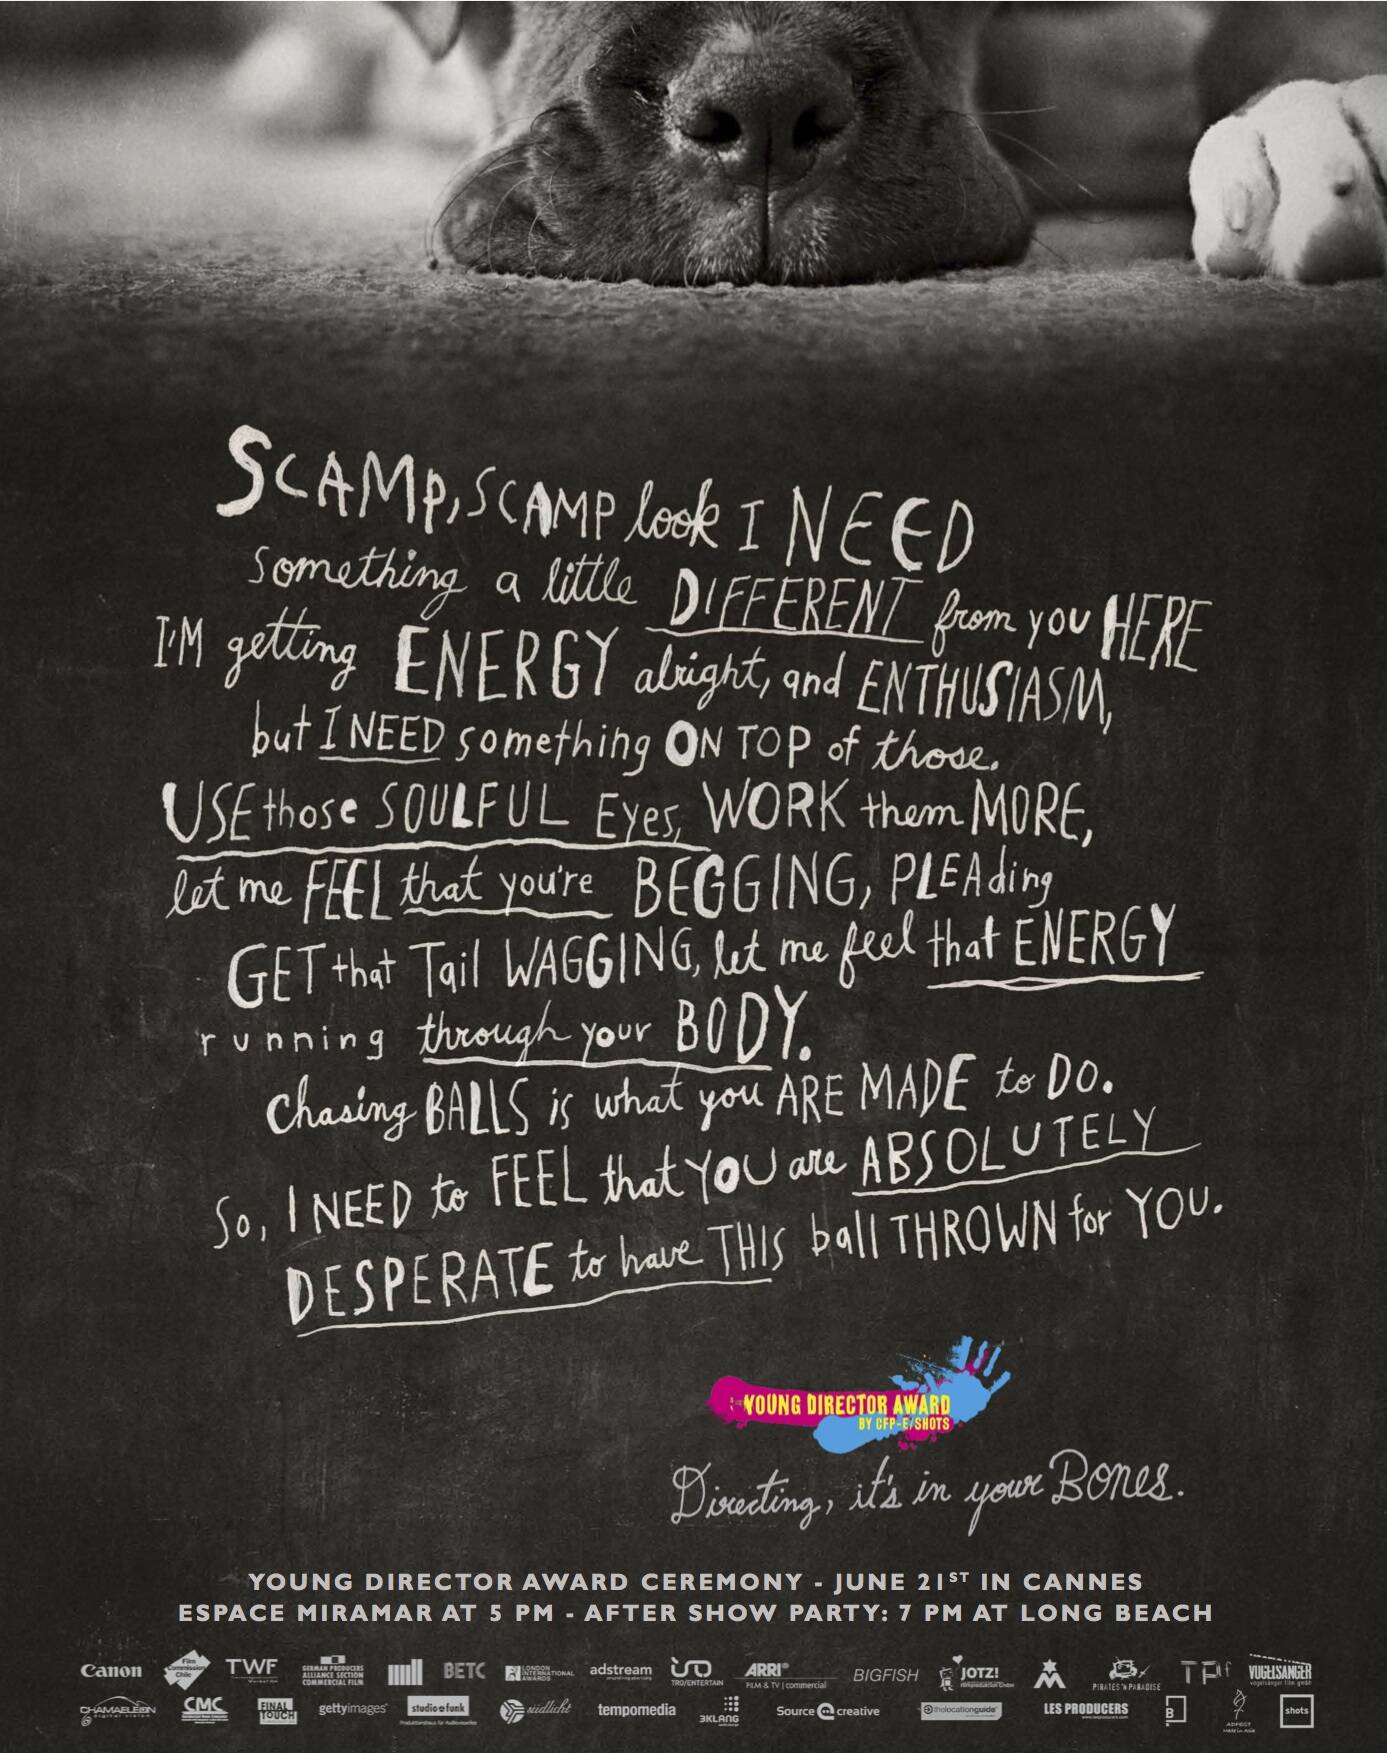 SCAMP, SCAMP look I NEED
something a little DIFFERENT from you HERE
I'M getting ENERGY alright, and ENTHUSIASM,
but I NEED something ON TOP of those.
USE those SOULFUL Eyes, WORK them MORE,
let me FEEL that you're BEGGING, PLEAding
GET that Tail WAGGING, let me feel that ENERGY
running through your BODY.
Chasing BALLS is what you ARE MADE to DO.
So, I NEED to FEEL that YOU are ABSOLUTELY
DESPERATE to have THIS ball THROWN for YOU.
YOUNG DIRECTOR AWARD
BY CFP-E/SHOTS
Directing, it's in your BONES.
YOUNG DIRECTOR AWARD CEREMONY - JUNE 21ST IN CANNES
ESPACE MIRAMAR AT 5 PM - AFTER SHOW PARTY: 7 PM AT LONG BEACH
Canon
Film Commission Chile
TWF
GERMAN PRODUCERS
ALLIANCE SECTION
COMMERCIAL FILM
BETC
LONDON
INTERNATIONAL
AWARDS
adstream
TRO/ENTERTAIN
ARRI®
FILM & TV | commercial
BIGFISH
JOTZ!
PIRATES 'N PARADISE
VOGELSANGER
vogelsänger film gmbh
CHAMAELEON
digital vision
CMC
FINAL
TOUCH
gettyimages®
studio funk
südlicht
tempomedia
3KLANG
Source creative
thelocationguide
LES PRODUCERS
B
ADFEST
MADE IN ASIA
shots